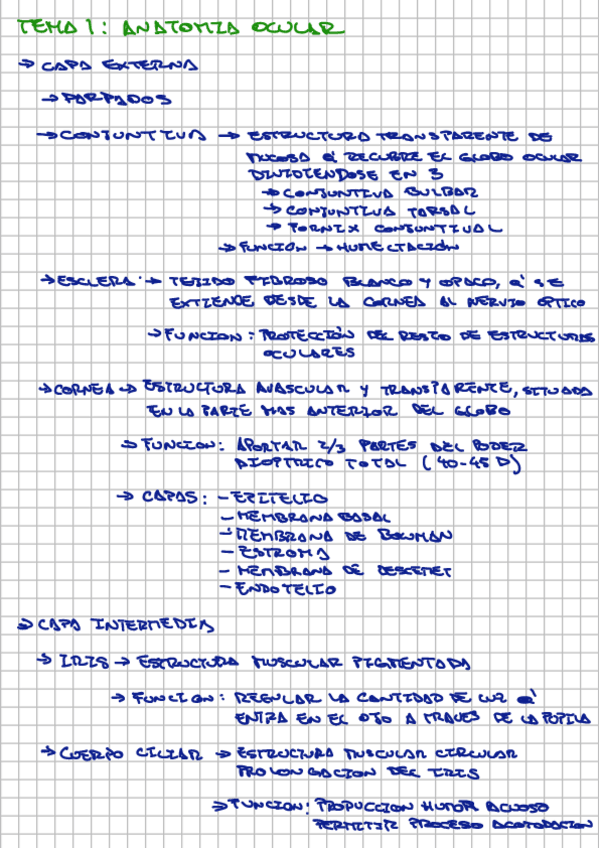 TEMA 1: ANATOMIA OCULAR
→ CAPA EXTERNA
→ PARPADOS
→ CONJUNTIVA → ESTRUCTURA TRANSPARENTE DE
MUCOSA Q' RECUBRE EL GLOBO OCULAR
DIVIDIENDOSE EN 3
→ CONJUNTIVA BULBAR
→ CONJUNTIVA TARSAL
→ FORNIX CONJUNTIVAL
→ FUNCION → HUMECTACIÓN
→ ESCLERA → TEJIDO FIBROSO BLANCO Y OPACO, Q' SE
EXTIENDE DESDE LA CORNEA AL NERVIO OPTICO
→ FUNCION: PROTECCIÓN DEL RESTO DE ESTRUCTURAS
OCULARES
→ CORNEA → ESTRUCTURA AVASCULAR Y TRANSPARENTE, SITUADA
EN LA PARTE MAS ANTERIOR DEL GLOBO
→ FUNCION: APORTAR 2/3 PARTES DEL PODER
DIOPTRICO TOTAL (40-45 D)
→ CAPAS: - EPITELIO
- MEMBRANA BASAL
- MEMBRANA DE BOWMAN
- ESTROMA
- MEMBRANA DE DESCEMET
- ENDOTELIO
→ CAPA INTERMEDIA
→ IRIS → ESTRUCTURA MUSCULAR PIGMENTADA
→ FUNCION: REGULAR LA CANTIDAD DE LUZ Q'
ENTRA EN EL OJO A TRAVES DE LA PUPILA
→ CUERPO CILIAR → ESTRUCTURA MUSCULAR CIRCULAR
PROLONGACION DEL IRIS
→ FUNCION: PRODUCCION HUMOR ACUOSO
PERMITIR PROCESO ACOMODACION